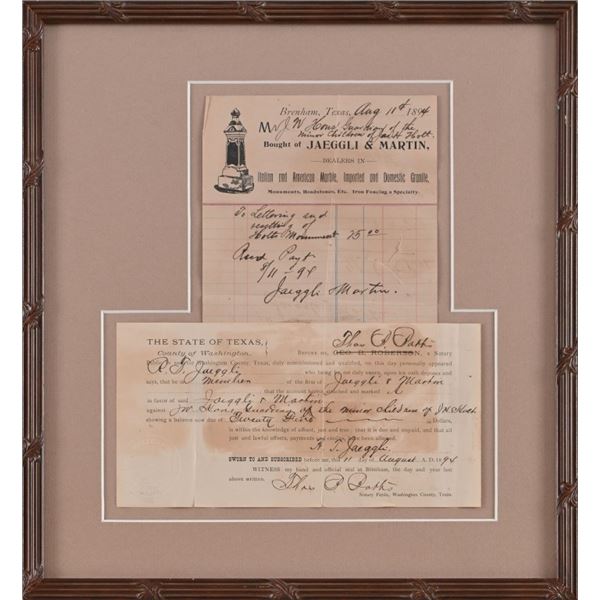 Brenham, Texas, Aug 11th 1894
Mr J. W. Hons Guardian of the
minor children of Holt.
Bought of JAEGGLI & MARTIN,
—DEALERS IN—
Italian and American Marble, Imported and Domestic Granite,
Monuments, Headstones, Etc. Iron Fencing a Specialty.
To Lettering and
resetting of
Holt Monument 25 00
Recd Payt
8/11 - 94
Jaeggli & Martin.
THE STATE OF TEXAS,
County of Washington.
Thos P.
BEFORE ME, GEO. B. ROBERSON, a Notary
Public in and for Washington County, Texas, duly commissioned and qualified, on this day personally appeared
R. T. Jaeggli who being by me duly sworn, upon his oath deposes and
says, that he is member of the firm of Jaeggli & Martin
that the account hereto attached and marked A
in favor of said Jaeggli & Martin
against J W Guardian of the minor children of
showing a balance now due of Twenty Five Dollars,
is within the knowledge of affiant, just and true; that it is due and unpaid, and that all
just and lawful offsets, payments and credits have been allowed.
R. T. Jaeggli.
SWORN TO AND SUBSCRIBED before me, this 11 day of August A. D. 1894
WITNESS my hand and official seal at Brenham, the day and year last
above written. Thos P
Notary Public, Washington County, Texas.